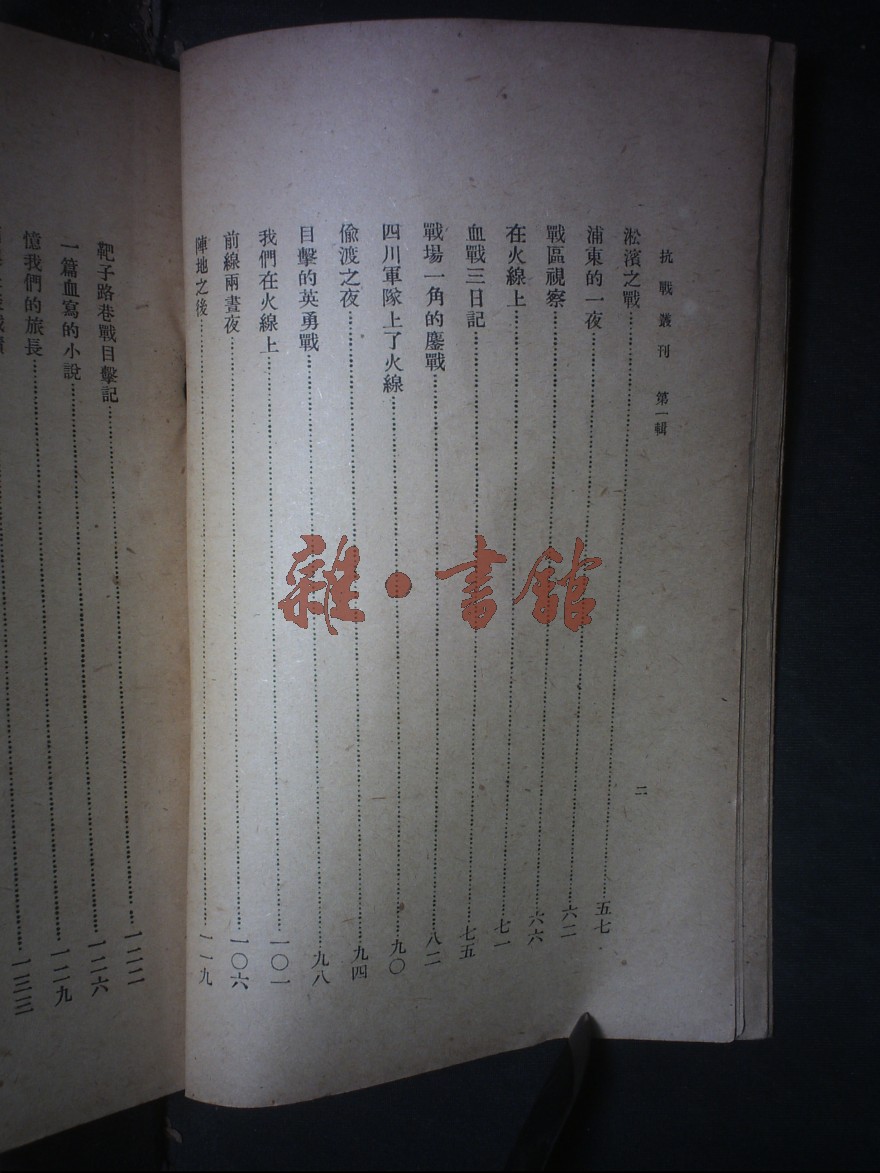 抗戰叢刊 第一輯
二
淞濱之戰……五七
浦東的一夜……六二
戰區視察……六六
在火線上……七一
血戰三日記……七五
戰場一角的鏖戰……八二
四川軍隊上了火線……九〇
偷渡之夜……九四
目擊的英勇戰……九八
我們在火線上……一〇一
前線兩晝夜……一〇六
陣地之後……一一九
靶子路巷戰目擊記……一二二
一篇血寫的小說……一二六
憶我們的旅長……一二九
一三三
雜·書館